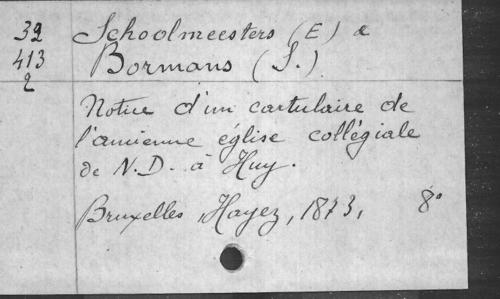 32 Schoolmeesters (E) &
413 Bormans (S.)
2
Notice d'un cartulaire de
l'ancienne église collégiale
de N.D. à Huy.
Bruxelles, Hayez, 1873, 8°